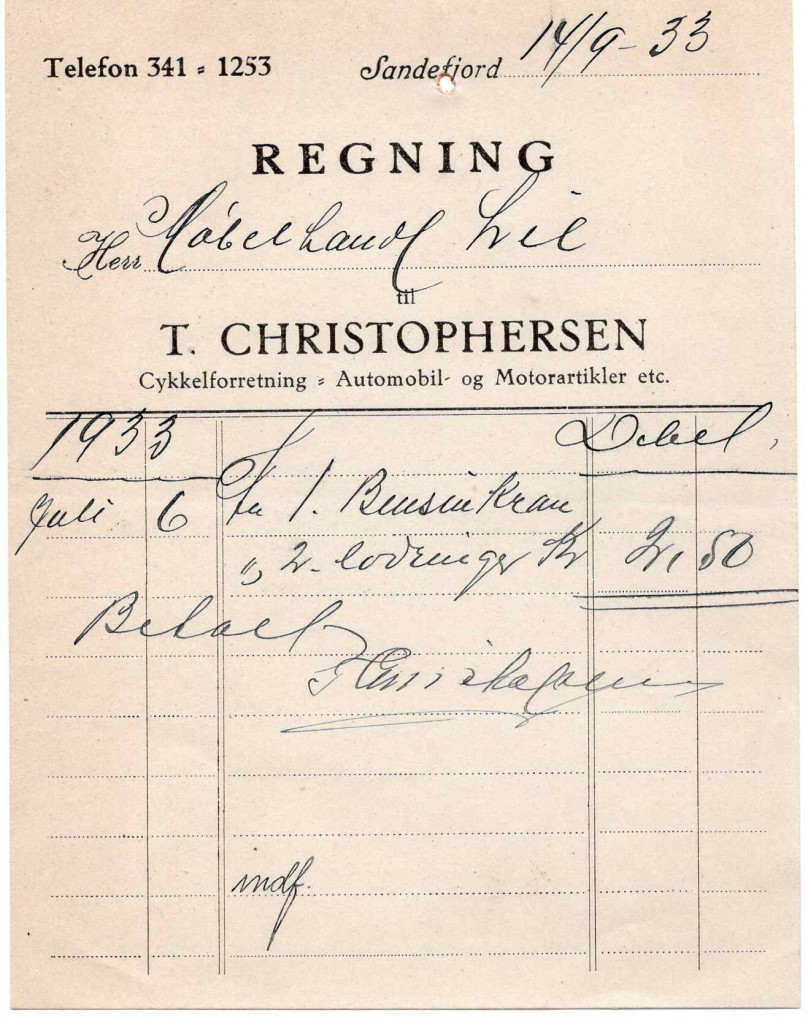 Telefon 341 = 1253 Sandefjord 14/9-33
REGNING
Herr Møbelhandl Lie
til
T. CHRISTOPHERSEN
Cykkelforretning = Automobil- og Motorartikler etc.
1933 Debet,
Juli 6 1. Bensinkran
" 2. lodninger Kr 2,50
Betalt
T Christophersen
indf.